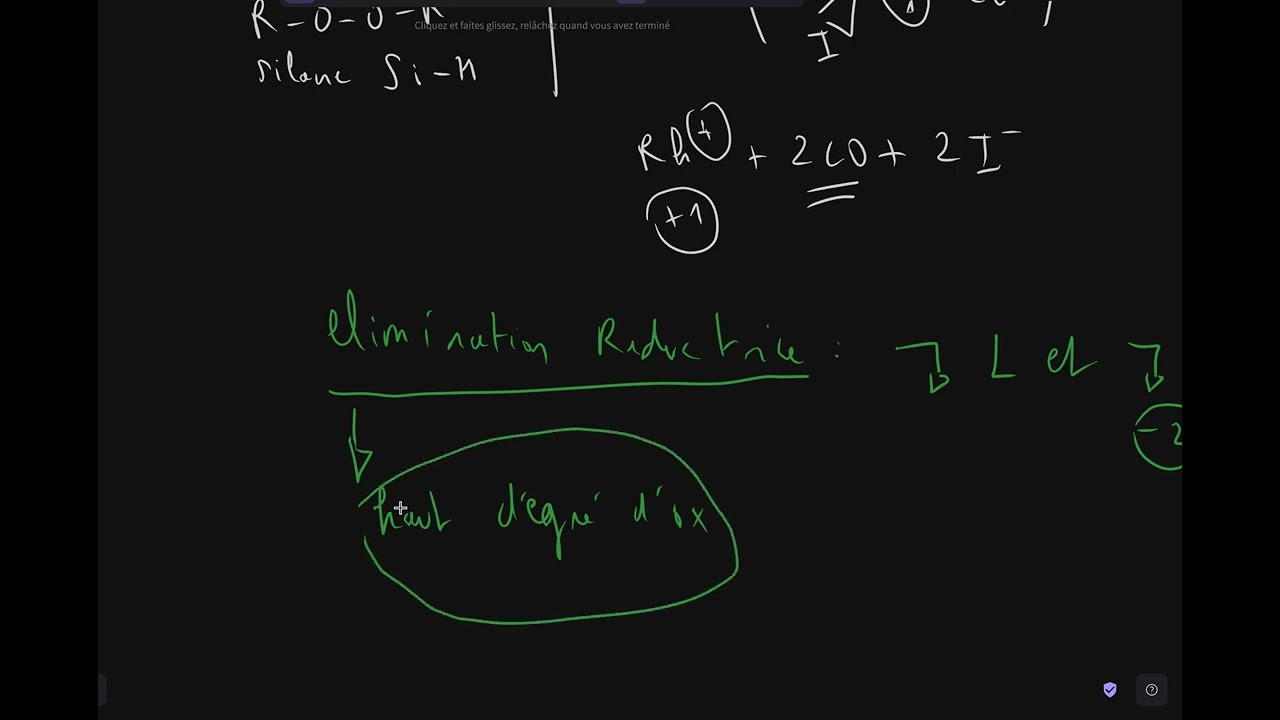 R-O-O-R
Cliquez et faites glissez, relâchez quand vous avez terminé
I
silane Si-H
Rh + + 2CO + 2I⁻
+1
elimination Reductrice : L et
-2
haut degré d'ox